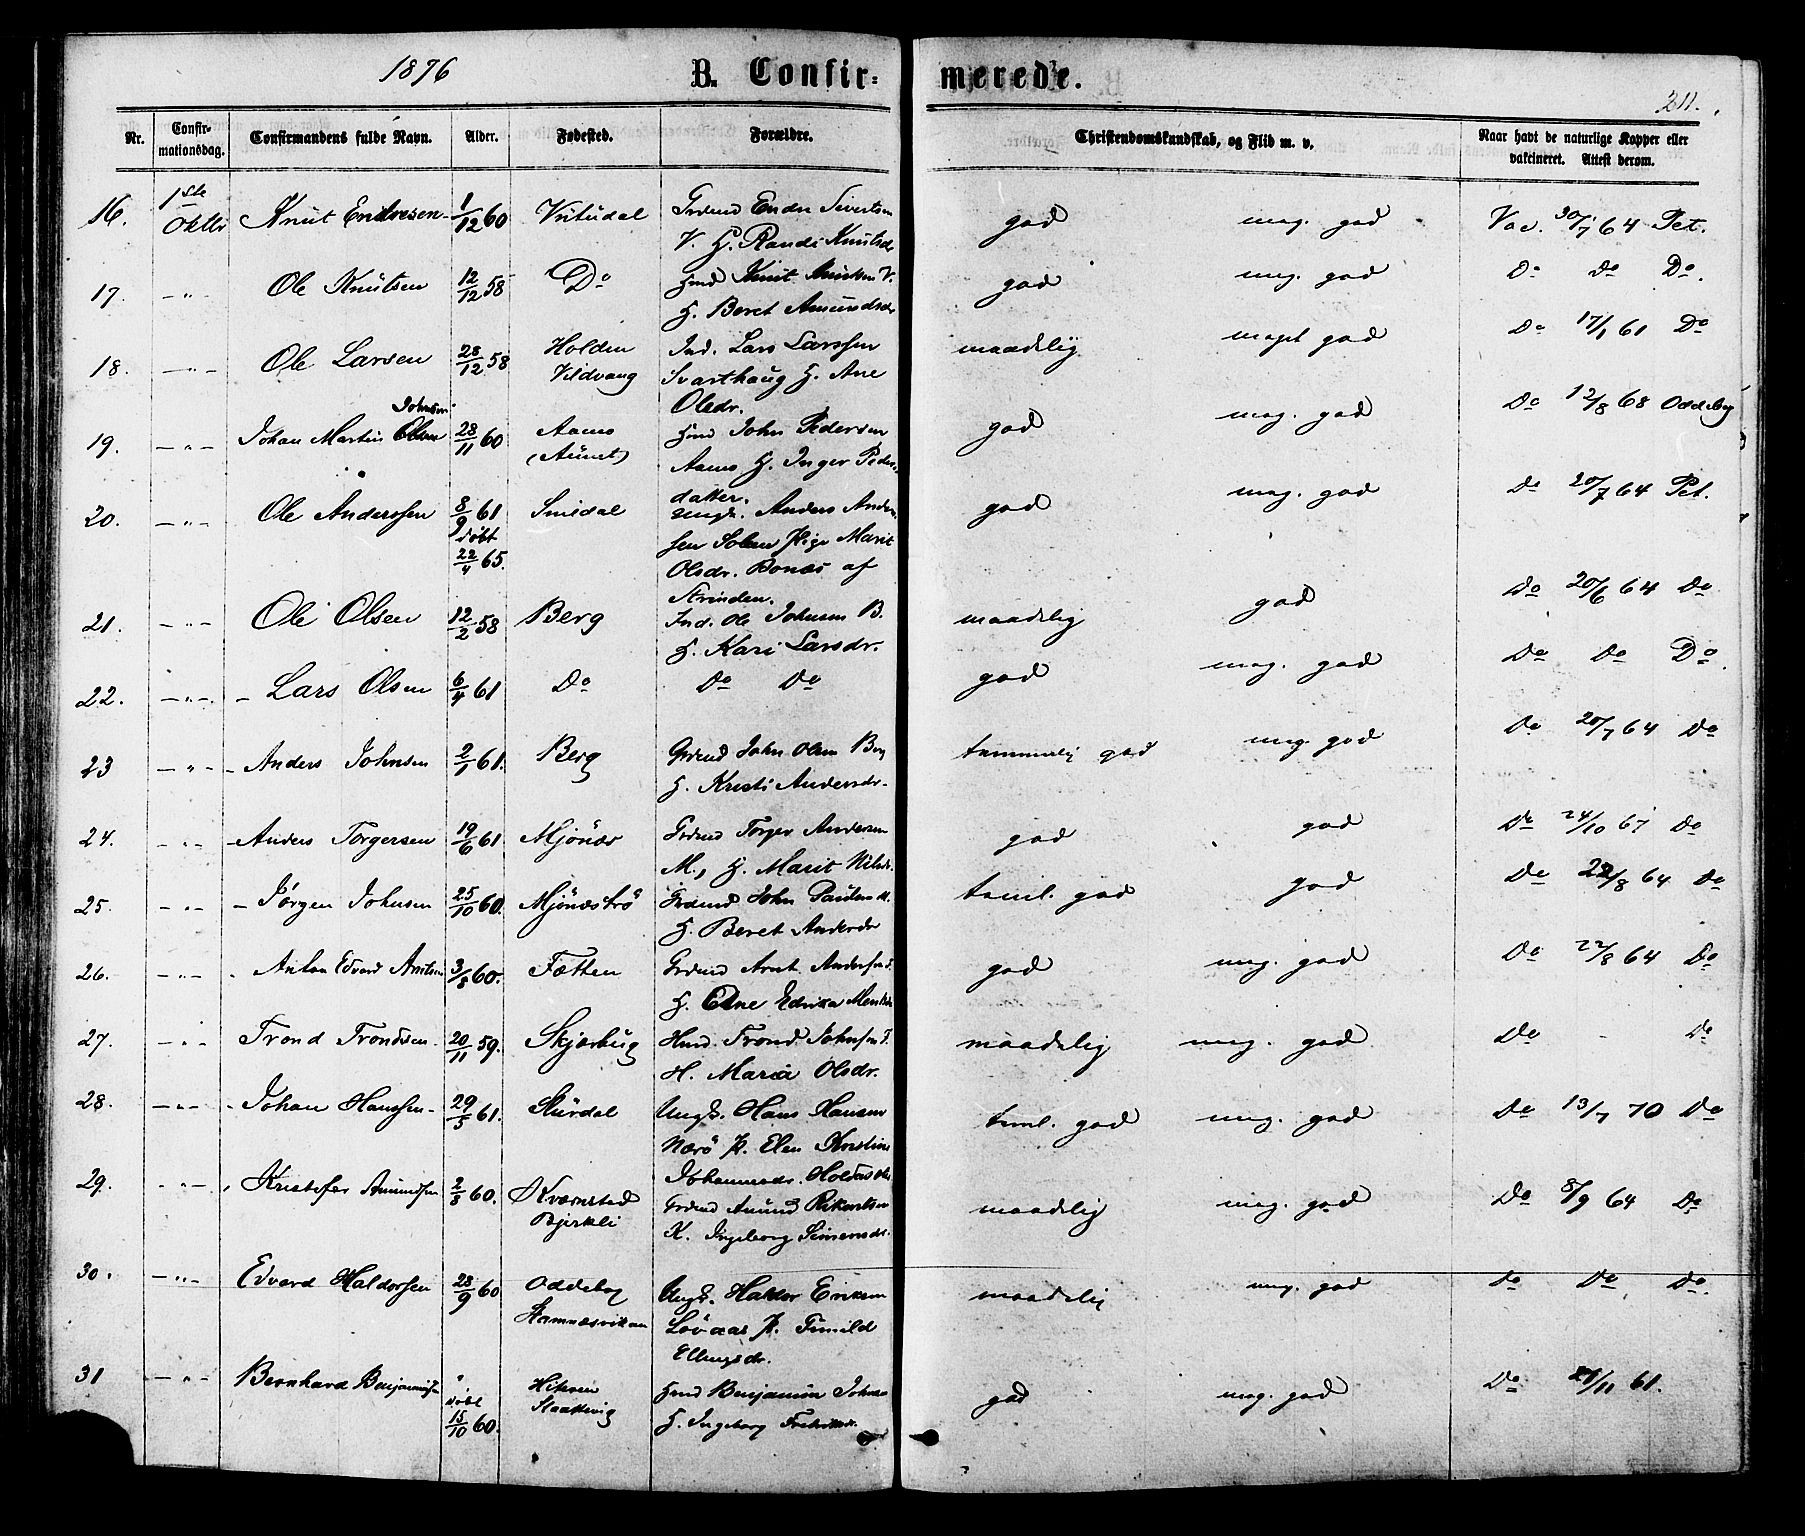 1876
B. Confir-
merede.
211.
Nr.
Confir-
mationsdag.
Confirmandens fulde Navn.
Alder.
Fødested.
Forældre.
Christendomskundskab, og Flid m. v.
Naar havt de naturlige Kopper eller
vakcineret. Attest derom.
16. 1ste Oktbr Knut Endresen 1/12 60 Vitudal Grdmd Endre Sivertsen
V. H. Randi Knutsdr
god mag. god Vac. 30/7 64 Pet.
17. -"- Ole Knutsen 12/12 58 Do Hmd Knut V.
H. Beret Amundsdr
god mag. god Do Do Do.
18. -"- Ole Larsen 28/12 58 Holden
Vildvang
Ind. Lars Larssen
Svarthaug H. Ane
Olsdr.
maadelig meget god Do 17/1 61 Do
19. -"- Johan Martin Olsen Johnsen 28/11 60 Aams
(Aunet)
Hmd John Pedersen
Aams H. Inger Peders
datter.
god mag. god Do 12/8 68 Oddeby
20. -"- Ole Anderssen 8/9 61
døbt
22/4 65.
Snisdal
Ungk. Anders Ander
sen Solem Pige Marit
Olsdr. Bonæs af
Strinden.
god mag. god Do 20/7 64 Pet.
21. -"- Ole Olsen 12/2 58 Berg Ind. Ole Johnsen B.
H. Kari Larsdr.
maadelig god Do 20/6 64 Do
22. -"- Lars Olsen 6/4 61 Do Do Do
god mag. god Do Do Do.
23 -"- Anders Johnsen 2/1 61. Berg Grdmd John Olsen Berg
H. Kristi Andersdr.
temmelig god mag. god Do 20/7 64 Do
24. -"- Anders Torgersen 19/6 61 Mjönæs Grdmd Torger Andersen
M., H. Marit Nilsdr.
god god Do 24/10 67 Do
25. -"- Jørgen Johnsen 25/10 60. Mjönæströ Grdmd John Paulsen M.
H. Beret Andersdr
teml. god god Do 22/8 64 Do
26. -"- Anton Edvard Arntsen 3/8 60. Fætten Grdmd Arnt Andersen F.
H. Edrika
god mag. god Do 22/8 64 Do
27. -"- Trond Trondsen 20/11 59. Skjærbug Hmd. Trond Johnsen F.
H. Maria Olsdr.
maadelig mag. god Do - Do
28. -"- Johan Hanssen 29/5 61. Sturdal Ungk. Hans Hansen
Nærö P. Elen Kristine
Johannesdr.
teml. god mag. god Do 13/7 70 Do
29. -"- Kristofer Amundsen 2/8 60. Kværnstad
Bjerkli
Grdmd Amund Rikartsen
K. Ingeborg Simensdr.
maadelig mag. god Do 8/9 64 Do
30. -"- Edvard Haldorsen 28/9 60 Oddeby
Hamnesvikan
Ungk. Haldor Eriksen
Lövaas P. Tunild
Ellingsdr.
maadelig mag. god Do Do Do.
31 -"- Bernhard Benjaminsen "
døbt
15/10 60.
Hiteren
Staalevig
Hmd Benjamin Johns
H. Ingeborg Fredriksdr.
god mag. god Do 27/11 61.